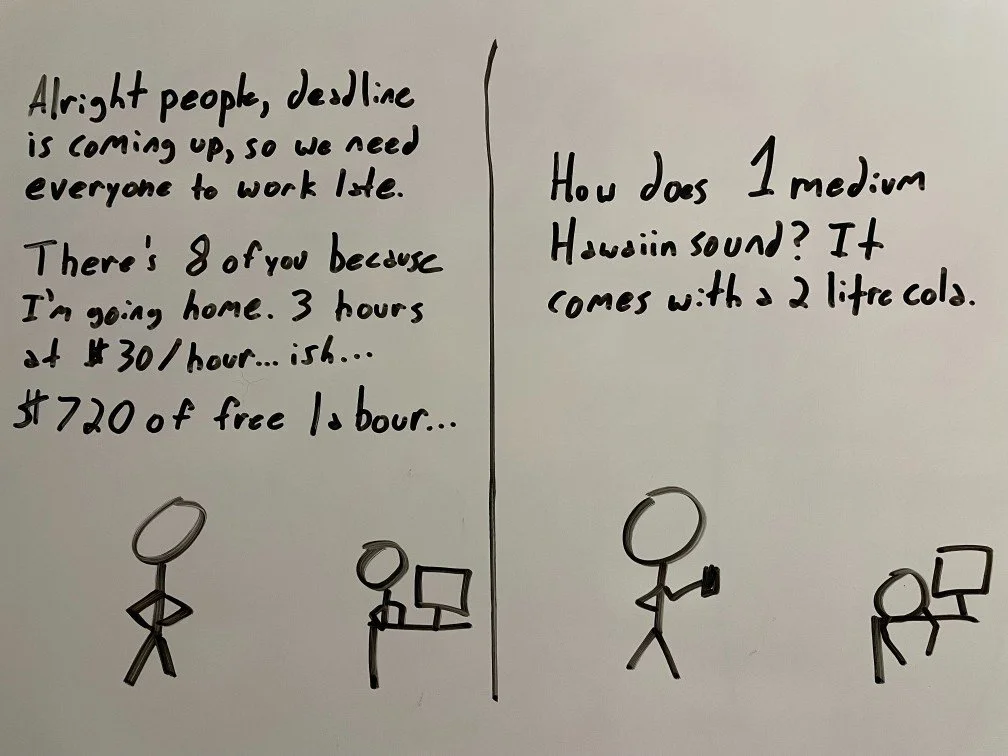 Alright people, deadline
is coming up, so we need
everyone to work late.
There's 8 of you because
I'm going home. 3 hours
at $30/hour... ish...
$720 of free labour...
How does 1 medium
Hawaiin sound? It
comes with a 2 litre cola.